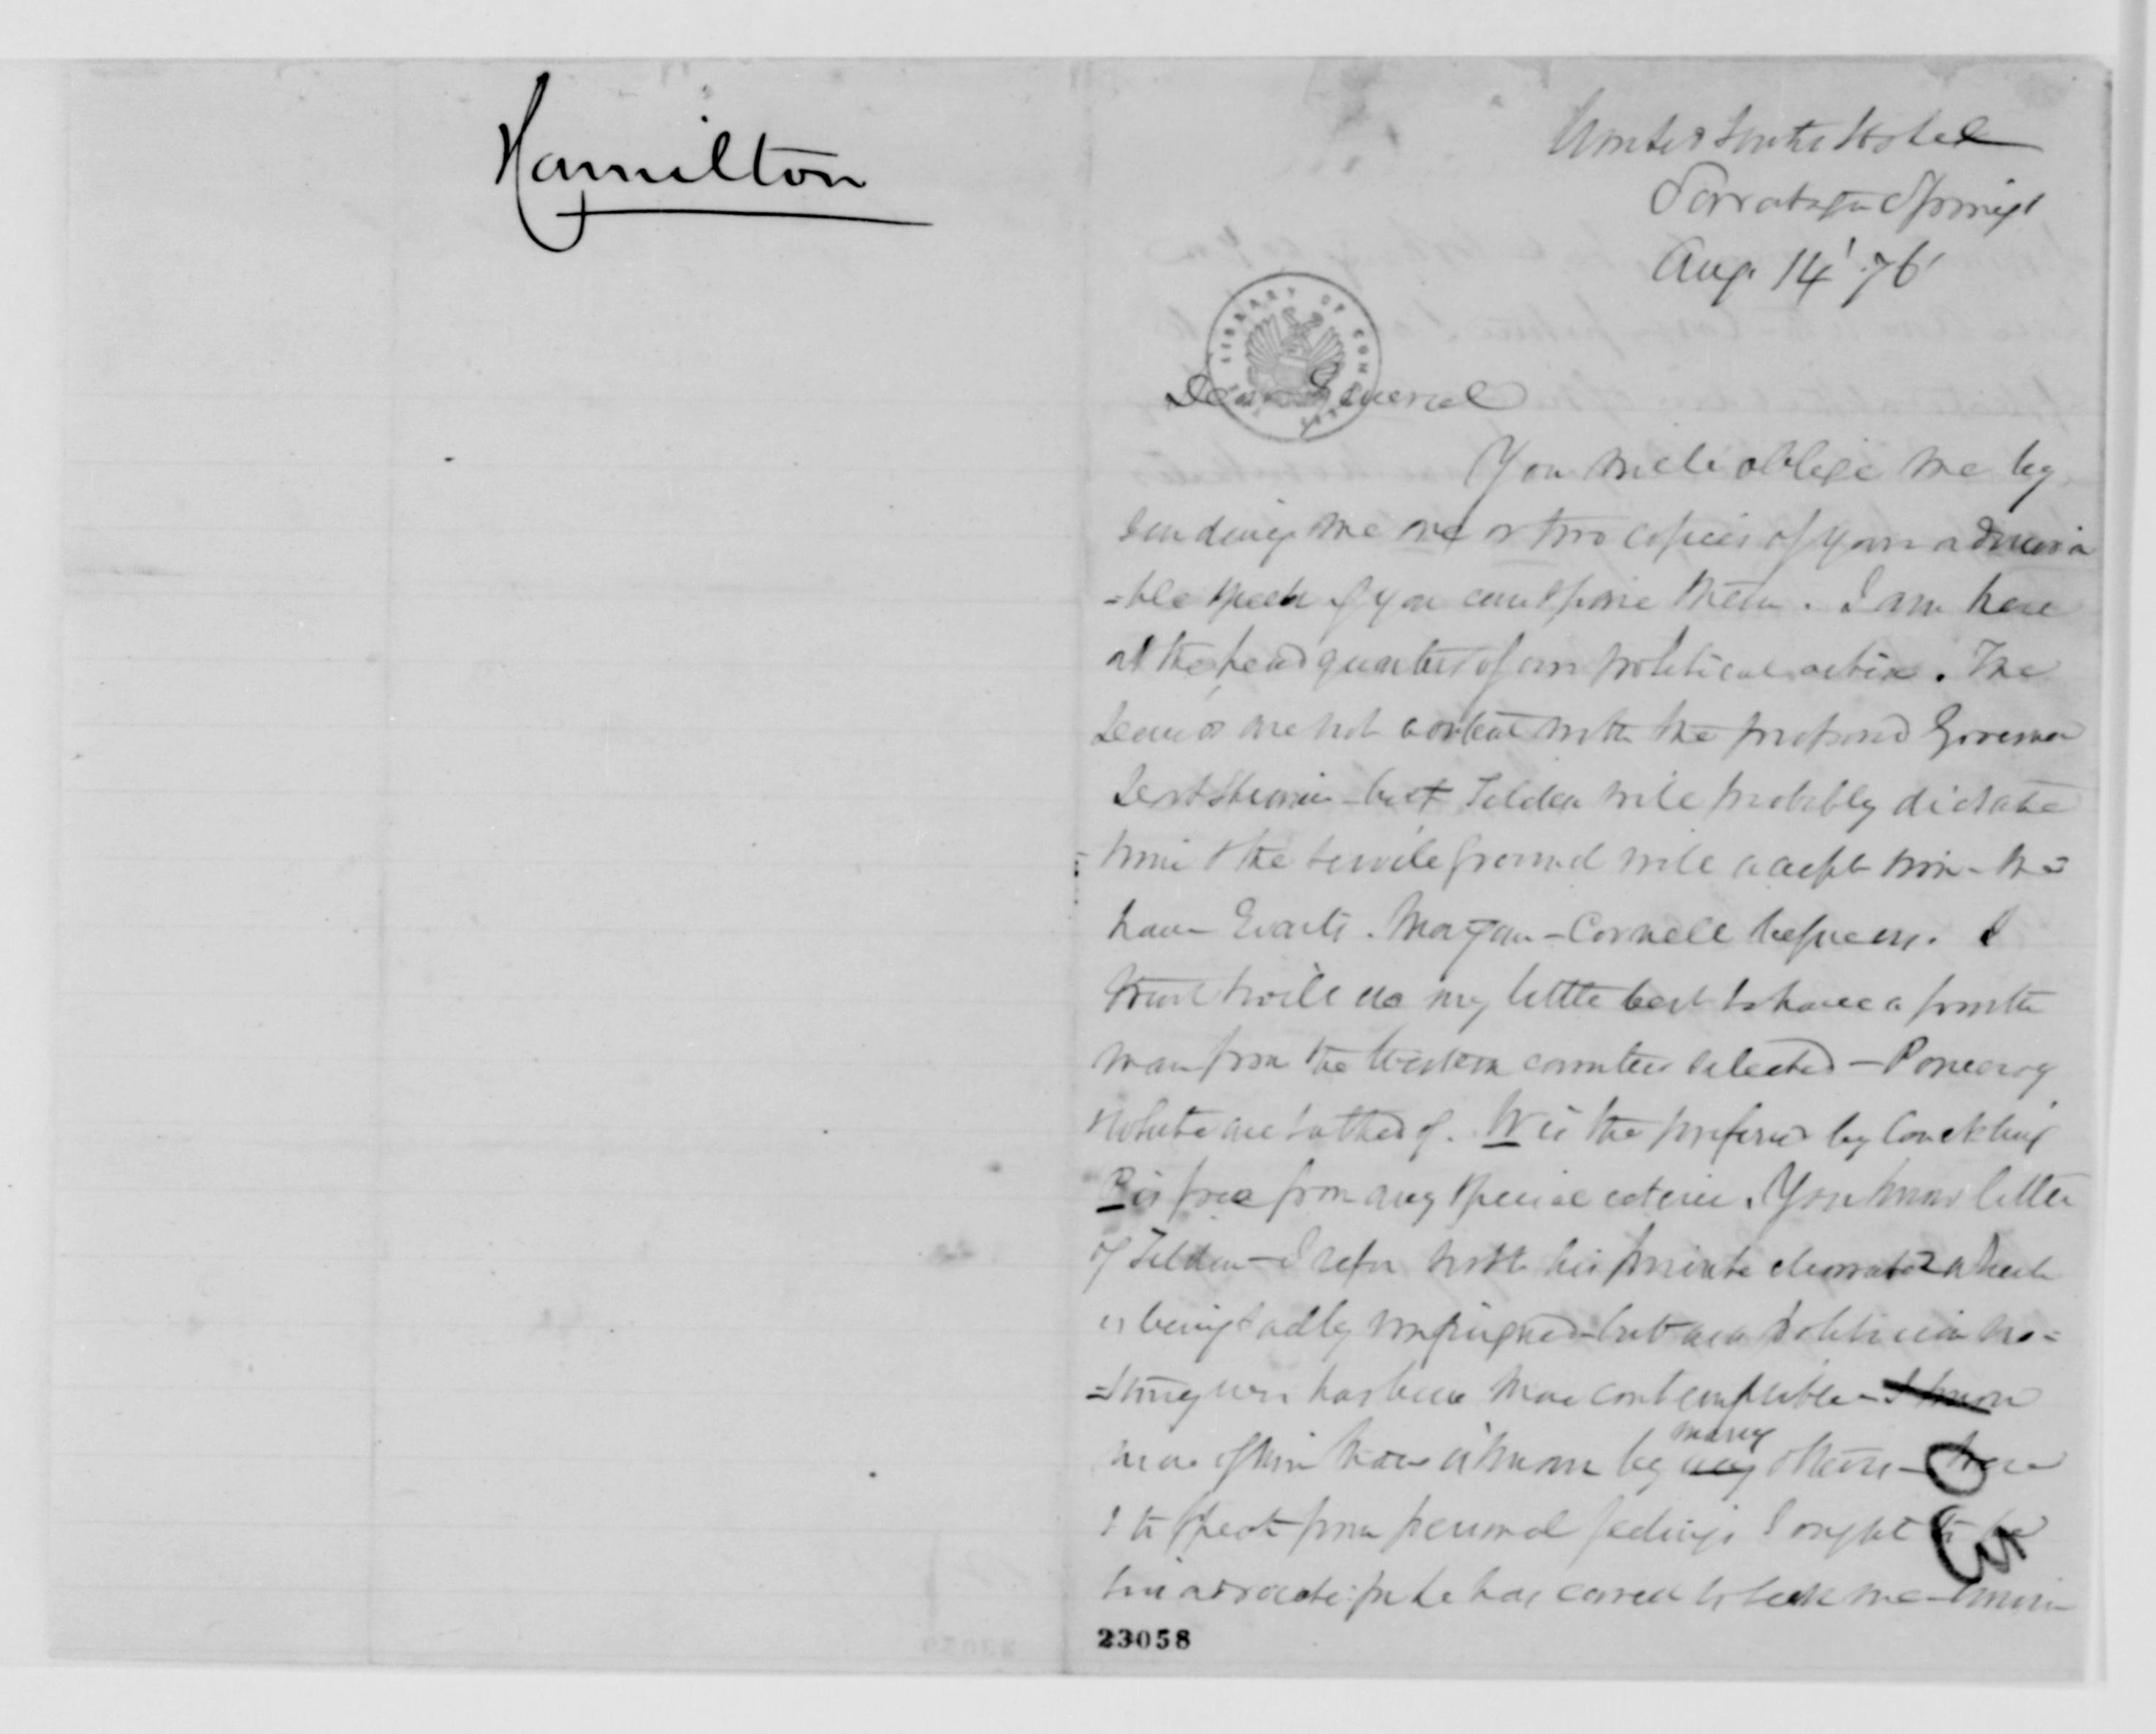 Hamilton
United States Hotel
Saratoga Springs
Aug. 14' 76'
LIBRARY OF CON
Dear General
You will oblige me by
sending me one or two copies of your admira
=ble speech if you can spare them. I am here
at the head quarters of our political action. The
are not content with the proposed Governor
but Tilden will probably dictate
him & the servile will accept him - We
have Evarts - Morgan - Cornell before us. I
trust & will do my little best to have a fourth
man from the Western counties selected - Pomeroy
& White are talked of. W is the preferred by Conkling
P is free from any special coterie. You know little
of Tilden - I refer not to his private character which
is being sadly impugned - but as a politician no=
=thing ever has been more contemptible - I know
more of him than is known by many any others - were
I to speak from personal feelings I ought to be
his advocate: for he has
23058